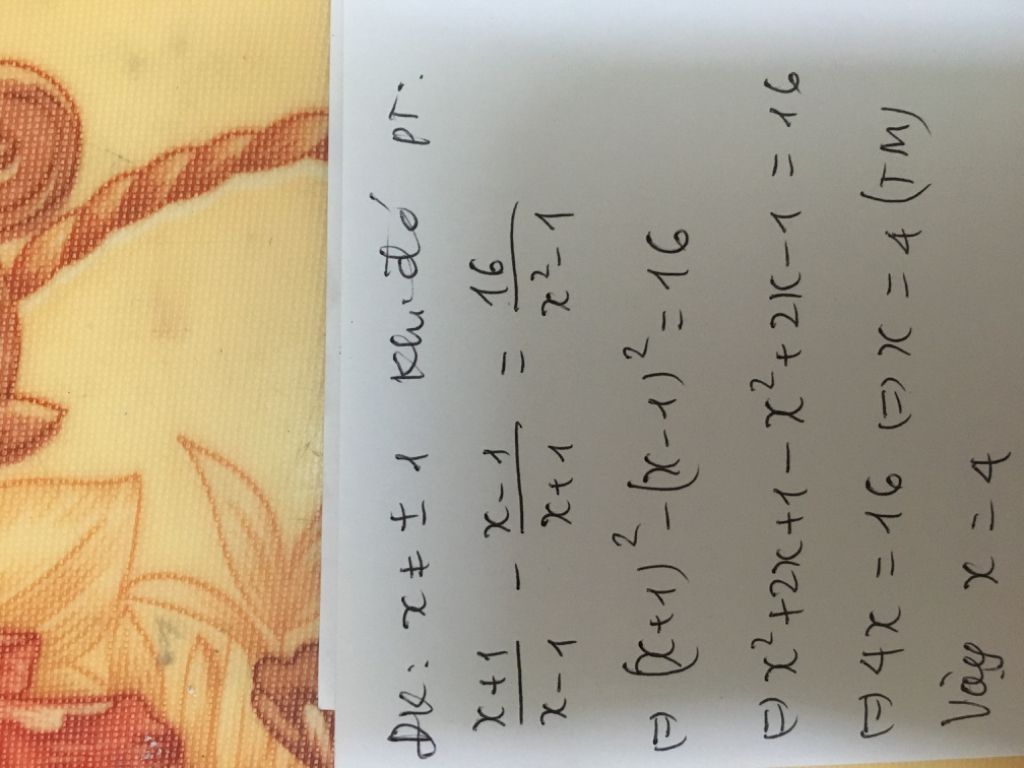 ĐK: x ≠ ± 1 khi đó PT:
\frac{x+1}{x-1} - \frac{x-1}{x+1} = \frac{16}{x²-1}
(=) (x+1)² - (x-1)² = 16
(=) x² + 2x + 1 - x² + 2x - 1 = 16
(=) 4x = 16 (=) x = 4 (TM)
Vậy x = 4